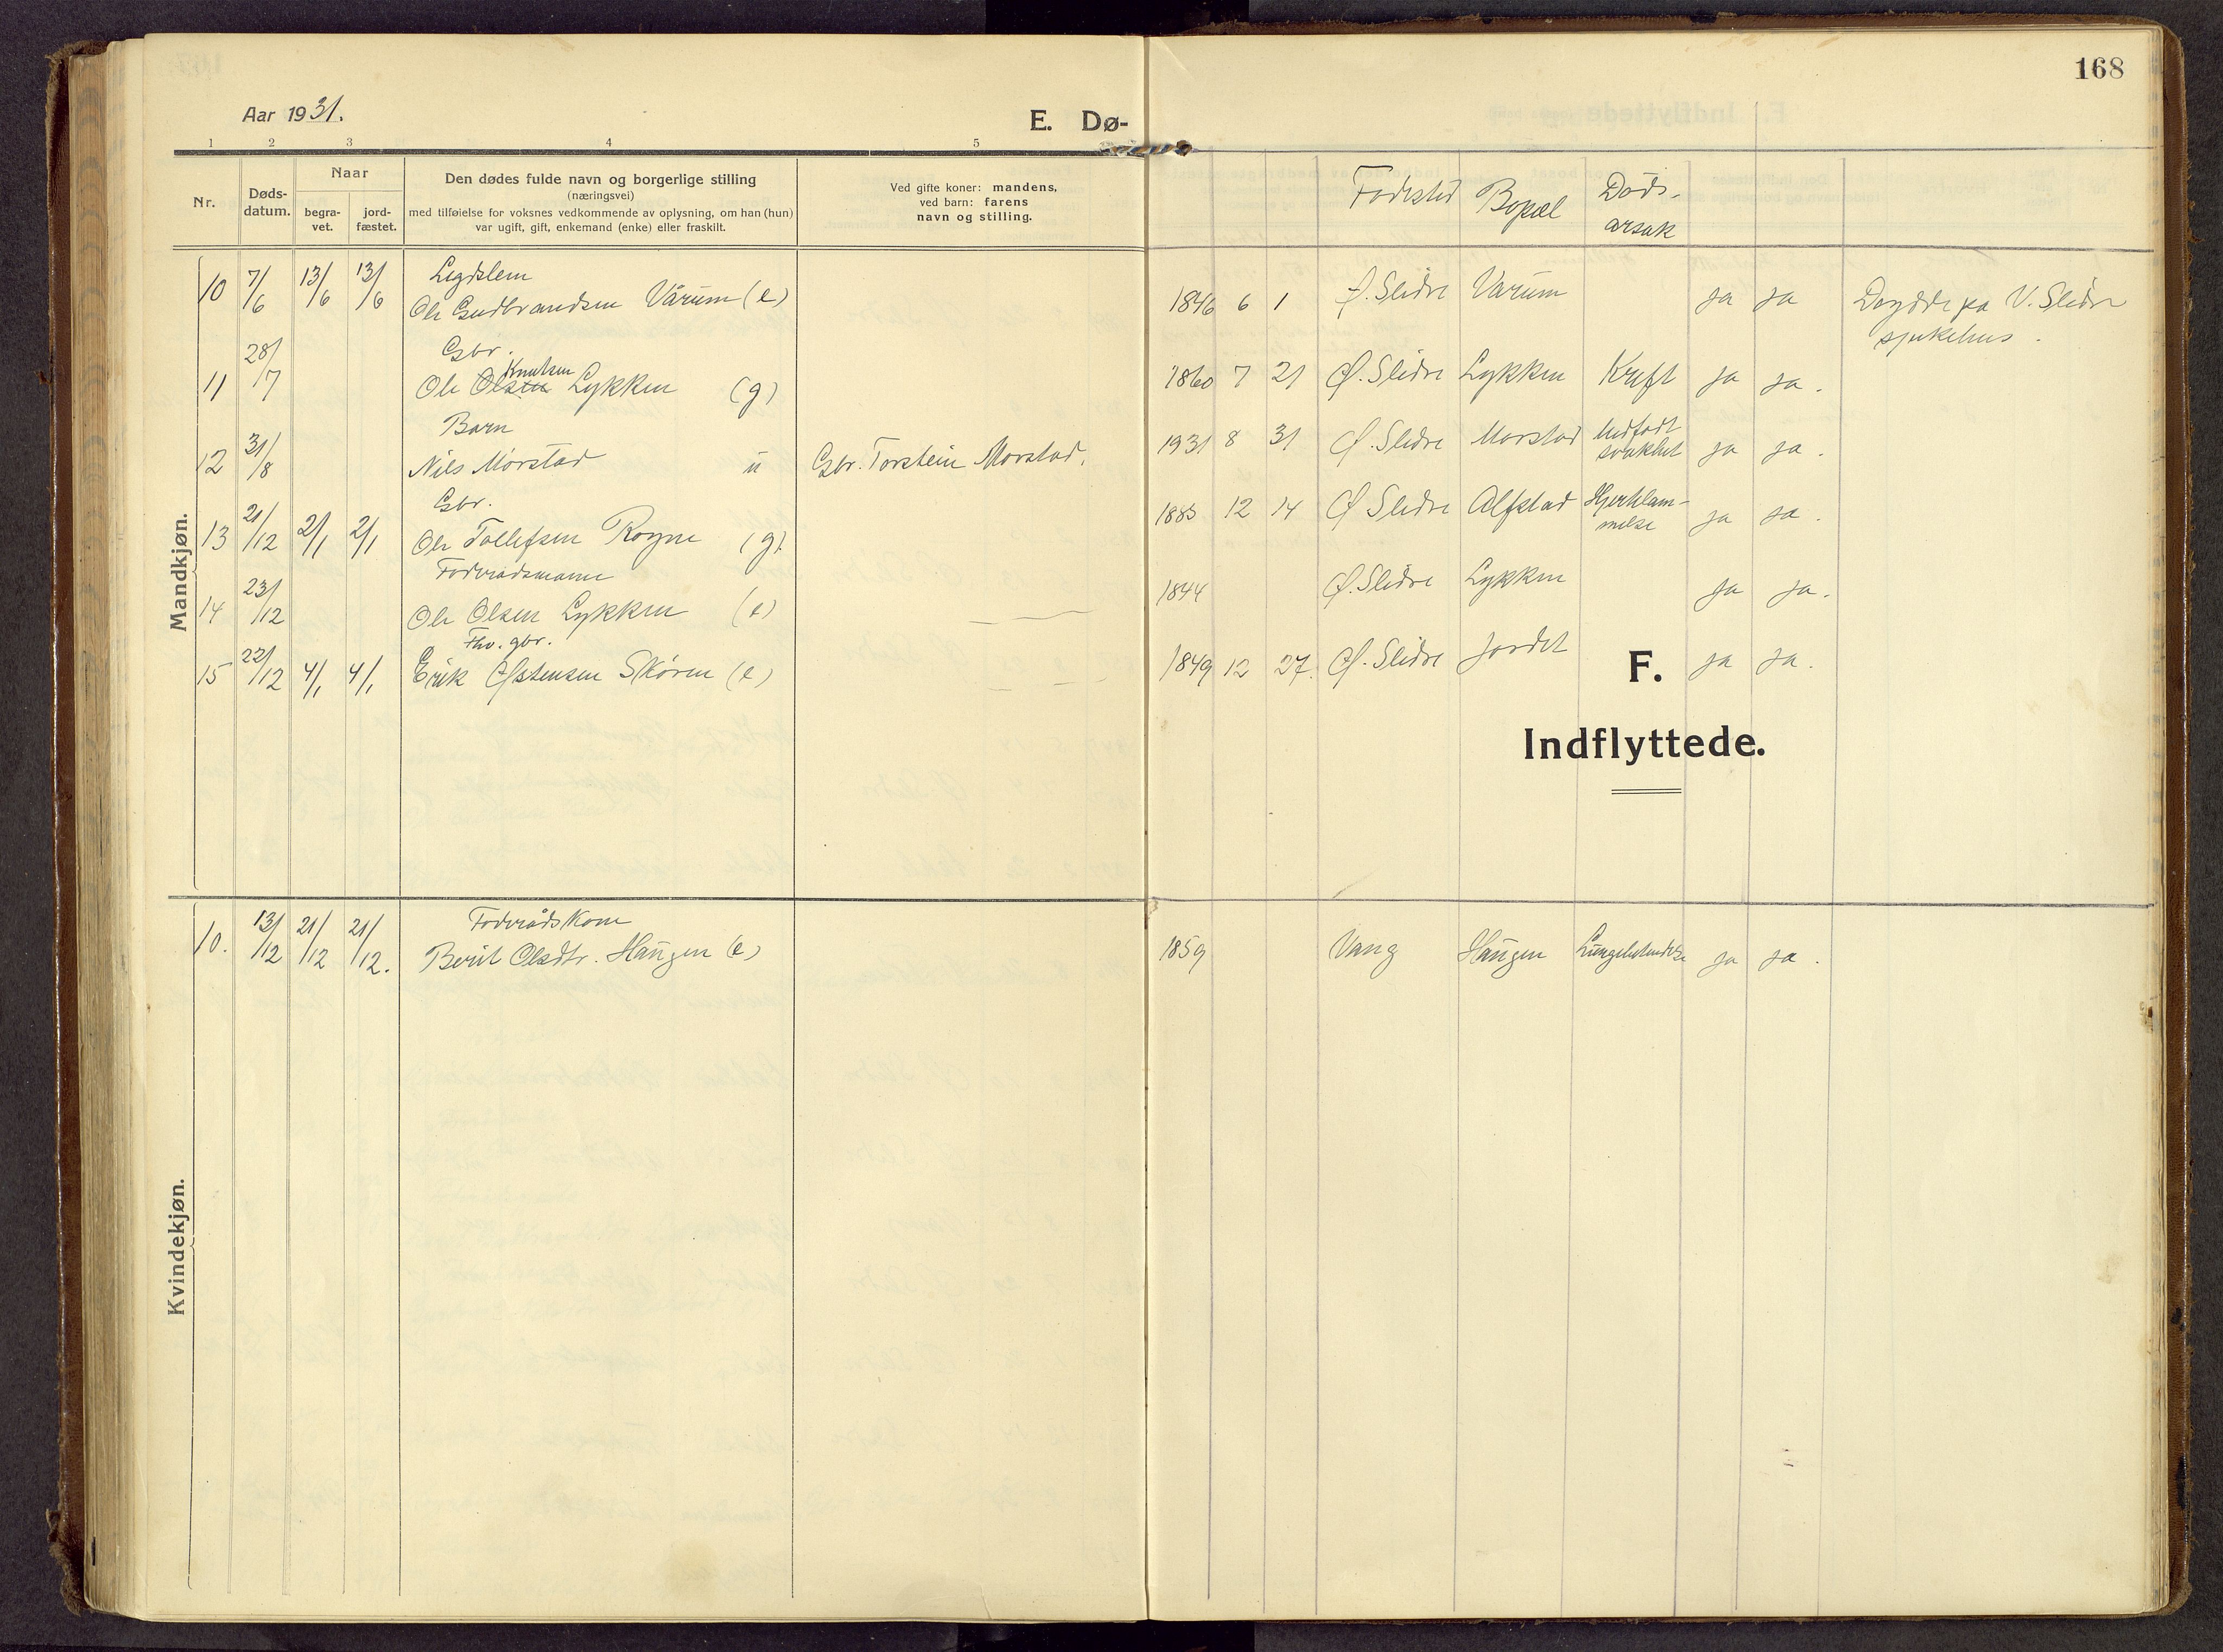 168
Aar 1931.
E. Dø-
1 2 3 4 5
Nr.
Døds-
datum.
Naar
begra-
vet.
jord-
fæstet.
Den dødes fulde navn og borgerlige stilling
(næringsvei)
med tilføielse for voksnes vedkommende av oplysning, om han (hun)
var ugift, gift, enkemand (enke) eller fraskilt.
Ved gifte koner: mandens,
ved barn: farens
navn og stilling.
Fødested
Bopæl
Døds-
arsak
Mandkjøn.
Legdslem
10 7/6 13/6 13/6 Ole Gudbrandsen Vårum (e) 1846 6 1 Ø. Slidre Varum ja ja Døydde pa V. Slidre
sjukehus.
Gbr.
Knutsen
11 28/7 Ole Olsen Lykken (g) 1860 7 21 Ø. Slidre Lykken Kreft ja ja.
Barn
12 31/8 Nils Morstad u Gbr. Torstein Morstad. 1931 8 31 Ø. Slidre Morstad Medfødt
svakhet ja ja.
Gbr.
13 21/12 2/1 2/1 Ole Tollefsen Rogne (g) 1885 12 14 Ø Slidre Alfstad Hjertelam-
melse ja ja.
Foderådsmann
14 23/12 Ole Olsen Lykken (e) 1844 Ø. Slidre Lykken ja ja.
Fhv. gbr.
15 22/12 4/1 4/1 Erik Østensen Skøren (e) 1849 12 27. Ø. Slidre Jordet ja ja.
F.
Indflyttede.
Kvindekjøn.
Foderåds Kone
10. 13/12 21/12 21/12. Berit Olsdtr. Haugen (e) 1859 Vang Haugen Lungebetendelse ja ja.